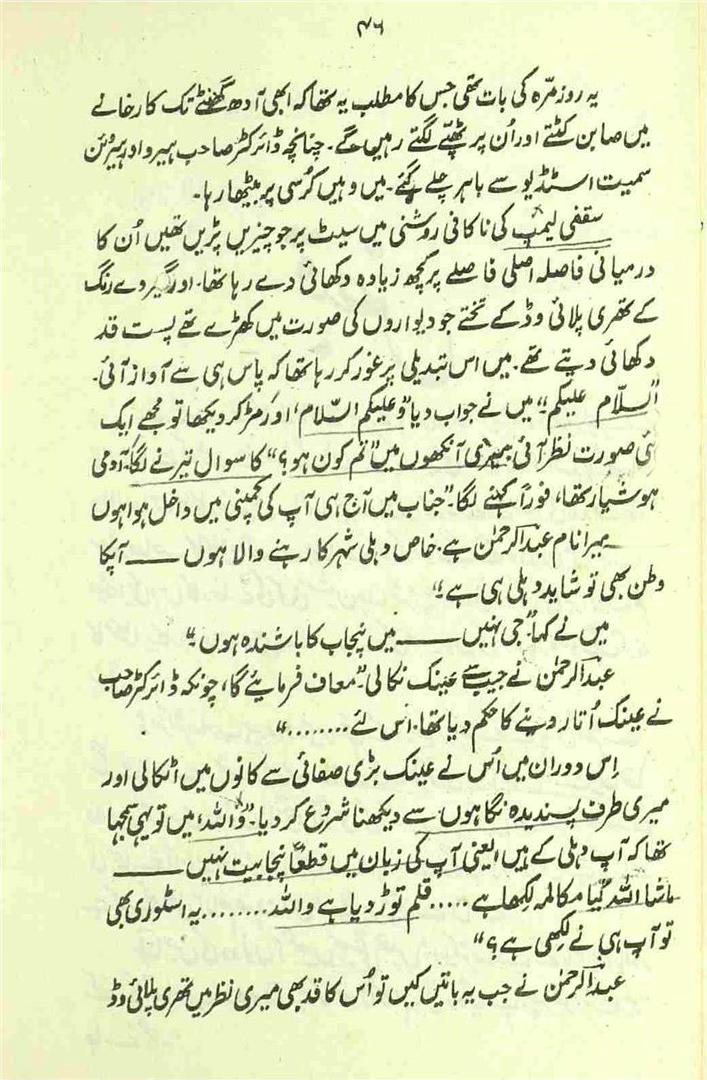 ۴۶
یہ روز مرّہ کی بات تھی جس کا مطلب یہ تھا کہ ابھی آدھ گھنٹے تک کارخانے
میں صابن کٹتے اور اُن پر ٹھپّے لگتے رہیں گے۔ چنانچہ ڈائرکٹر صاحب ہیرو اور ہیروئن
سمیت اسٹڈیو سے باہر چلے گئے۔ میں وہیں کُرسی پر بیٹھا رہا۔
سقفی لیمپ کی ناکافی روشنی میں سیٹ پر جو چیزیں پڑیں تھیں اُن کا
درمیانی فاصلہ اصلی فاصلے پر کچھ زیادہ دکھائی دے رہا تھا۔ اور گیروے رنگ
کے تھری پلائی وڈ کے تختے جو دیواروں کی صورت میں کھڑے تھے پست قد
دکھائی دیتے تھے۔ میں اس تبدیلی پر غور کر رہا تھا کہ پاس ہی سے آواز آئی۔
"السلّام علیکم" میں نے جواب دیا "وعلیکم السّلام" اور مُڑ کر دیکھا تو مجھے ایک
نئی صورت نظر آئی میری آنکھوں میں "تم کون ہو؟" کا سوال تیرنے لگا۔ آدمی
ہوشیار تھا، فوراً کہنے لگا۔ "جناب میں آج ہی آپ کی کمپنی میں داخل ہوا ہوں
میرا نام عبدالرحمٰن ہے۔ خاص دہلی شہر کا رہنے والا ہوں ــــــ آپکا
وطن بھی تو شاید دہلی ہی ہے"
میں نے کہا "جی نہیں ــــــ میں پنجاب کا باشندہ ہوں۔"
عبدالرحمٰن نے جیب سے عینک نکالی۔ "معاف فرمایئے گا، چونکہ ڈائرکٹر صاحب
نے عینک اُتار دینے کا حکم دیا تھا۔ اس لئے ........"
اِس دوران میں اُس نے عینک بڑی صفائی سے کانوں میں اٹکالی اور
میری طرف پسندیدہ نگاہوں سے دیکھنا شروع کر دیا۔ "واللہ، میں تو یہی سمجھا
تھا کہ آپ دہلی کے ہیں ایعنی آپ کی زبان میں قطعاً پنجابیت نہیں ــــــ
ماشاء اللہ کیا مکالمہ لکھا ہے ..... قلم توڑ دیا ہے واللہ ........ یہ اسٹوری بھی
تو آپ ہی نے لکھی ہے؟"
عبدالرحمٰن نے جب یہ باتیں کیں تو اُس کا قد بھی میری نظر میں تھری پلائی وڈ